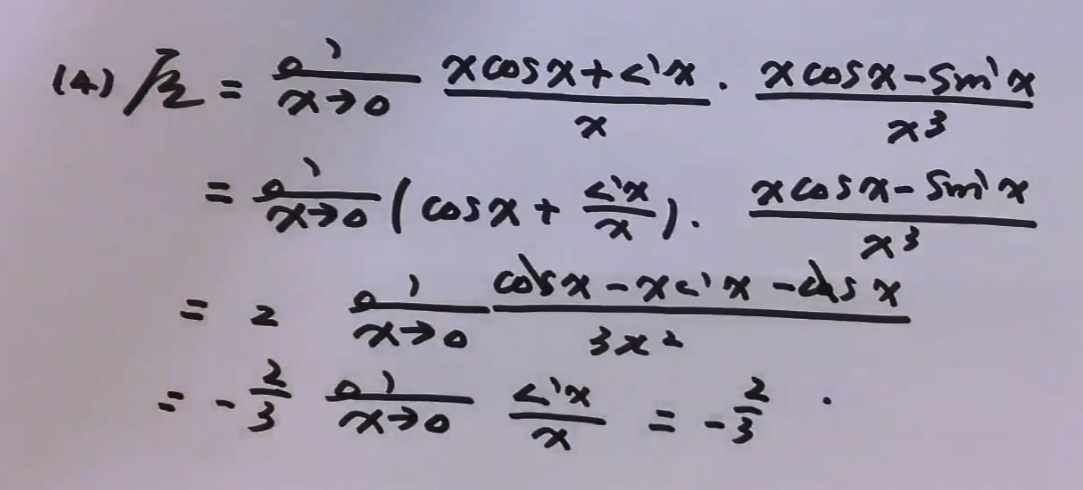 (4) 原 = lim x→0 (x cos x + sin x)/x · (x cos x - sin x)/x³
= lim x→0 (cos x + sin x/x) · (x cos x - sin x)/x³
= 2 lim x→0 (cos x - x sin x - cos x)/3x²
= -2/3 lim x→0 sin x/x = -2/3 .